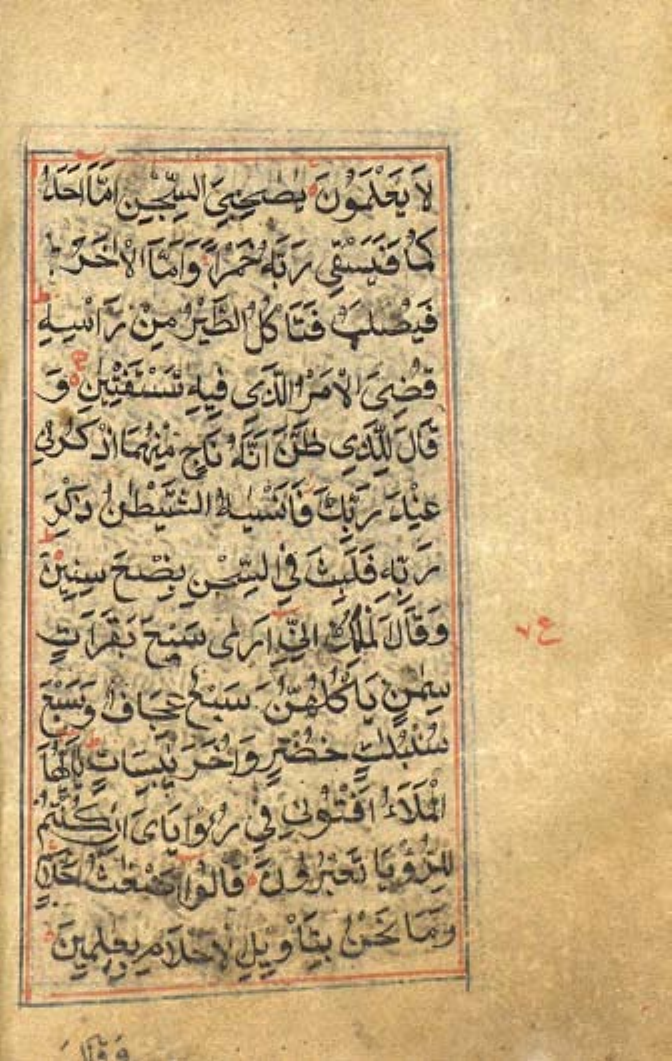 لَا يَعْلَمُوْنَ يٰصَاحِبَيِ السِّجْنِ اَمَّا اَحَدُ
كُمَا فَيَسْقِى رَبَّهٗ خَمْرًا وَاَمَّا الْاٰخَرُ
فَيُصْلَبُ فَتَاكُلُ الطَّيْرُ مِنْ رَاْسِهٖ ط
قُضِىَ الْاَمْرُ الَّذِى فِيْهِ تَسْتَفْتِيٰنِ م وَ
قَالَ لِلَّذِى ظَنَّ اَنَّهٗ نَاجٍ مِنْهُمَا اذْكُرْنِى
عِنْدَ رَبِّكَ فَاَنْسٰيهُ الشَّيْطٰنُ ذِكْرَ
رَبِّهٖ فَلَبِثَ فِى السِّجْنِ بِضْعَ سِنِيْنَ ط
وَقَالَ الْمَلِكُ اِنِّى اَرٰى سَبْعَ بَقَرَاتٍ
سِمَانٍ يَاْكُلُهُنَّ سَبْعٌ عِجَافٌ وَسَبْعَ
سُنْبُلٰتٍ خُضْرٍ وَاُخَرَ يٰبِسَاتٍ ط يٰاَيُّهَا
الْمَلَاُ اَفْتُوْنِى فِى رُءْيَاىَ اِنْ كُنْتُمْ
لِلرُّءْيَا تَعْبُرُوْنَ قَالُوْا اَضْغَاثُ اَحْلَامٍ
وَمَا نَحْنُ بِتَاْوِيْلِ الْاَحْلَامِ بِعٰلِمِيْنَ
ع ٧
وَقَالَ